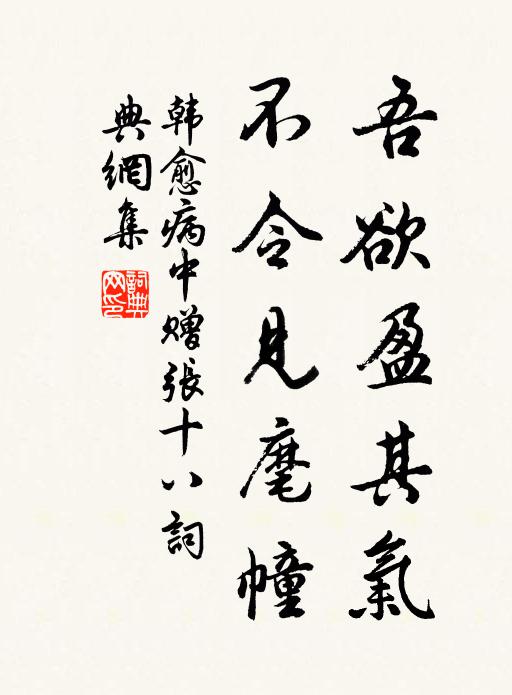 吾欲盈其氣
不令見麾幢
韩愈病中赠張十八詞
典網集
詞典网印